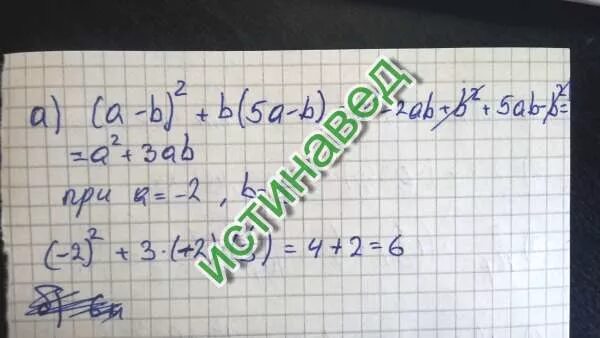 а) (a-b)² + b(5a-b) -2ab + b² + 5ab - b² =
= a² + 3ab
при a = -2 , b
(-2)² + 3·(-2) = 4 + 2 = 6
истинавед